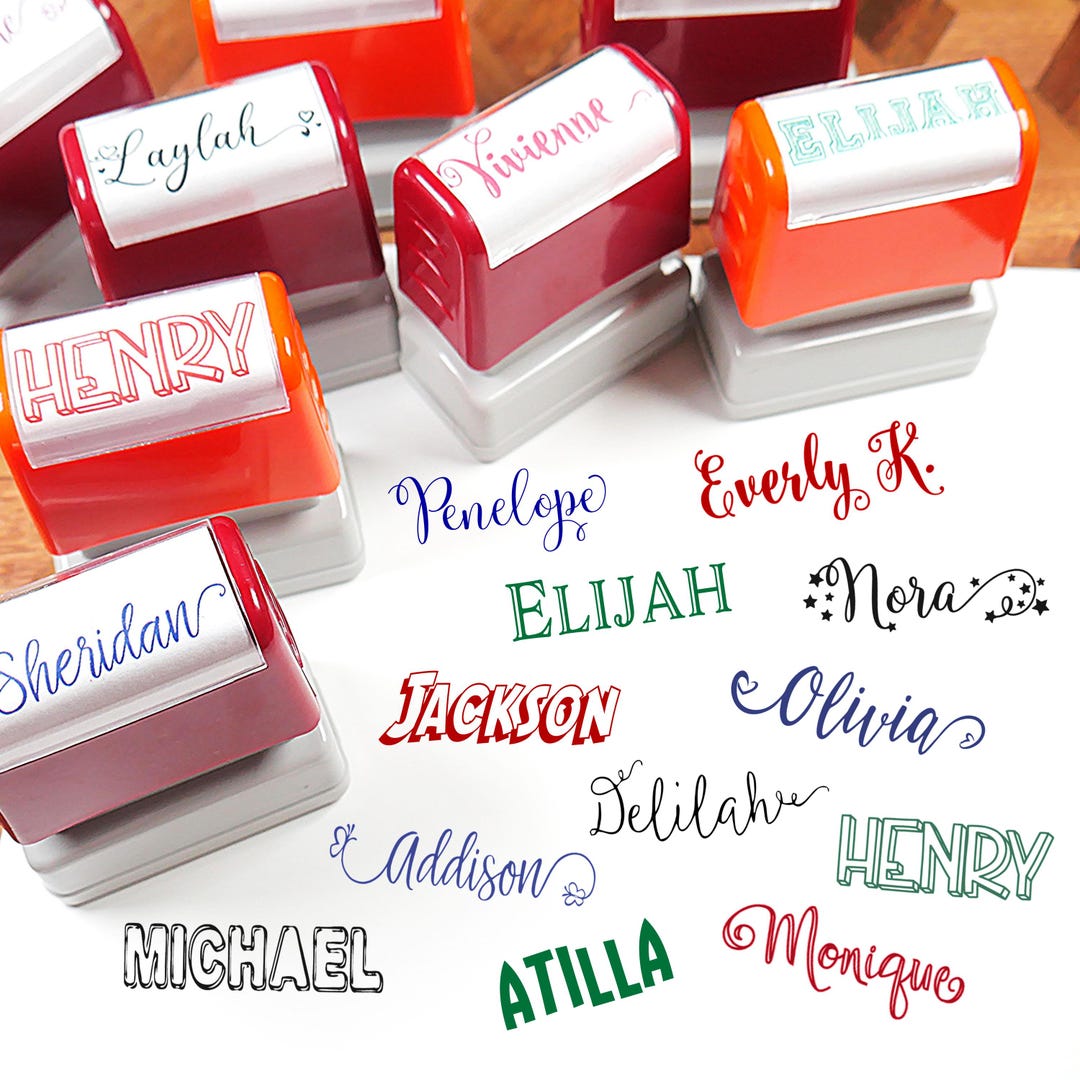 Laylah
Vivienne
ELIJAH
HENRY
Sheridan
Penelope
Everly K.
ELIJAH
Nora
JACKSON
Olivia
Delilah
HENRY
Addison
MICHAEL
ATILLA
Monique